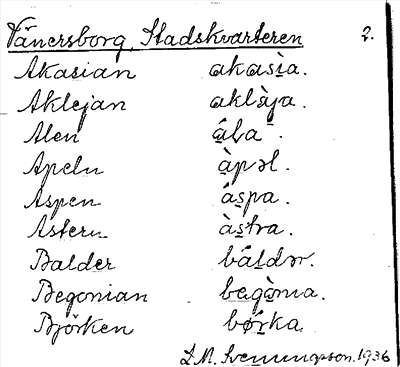 Vänersborg, Stadskvarteren 2.
Akasian akasìa.
Aklejan aklàja.
Alen ála.
Apeln àpəl.
Aspen áspa.
Astern àstra.
Balder báldər.
Begonian begòna.
Björken bǿrka.
D. M. Svenungsson. 1936